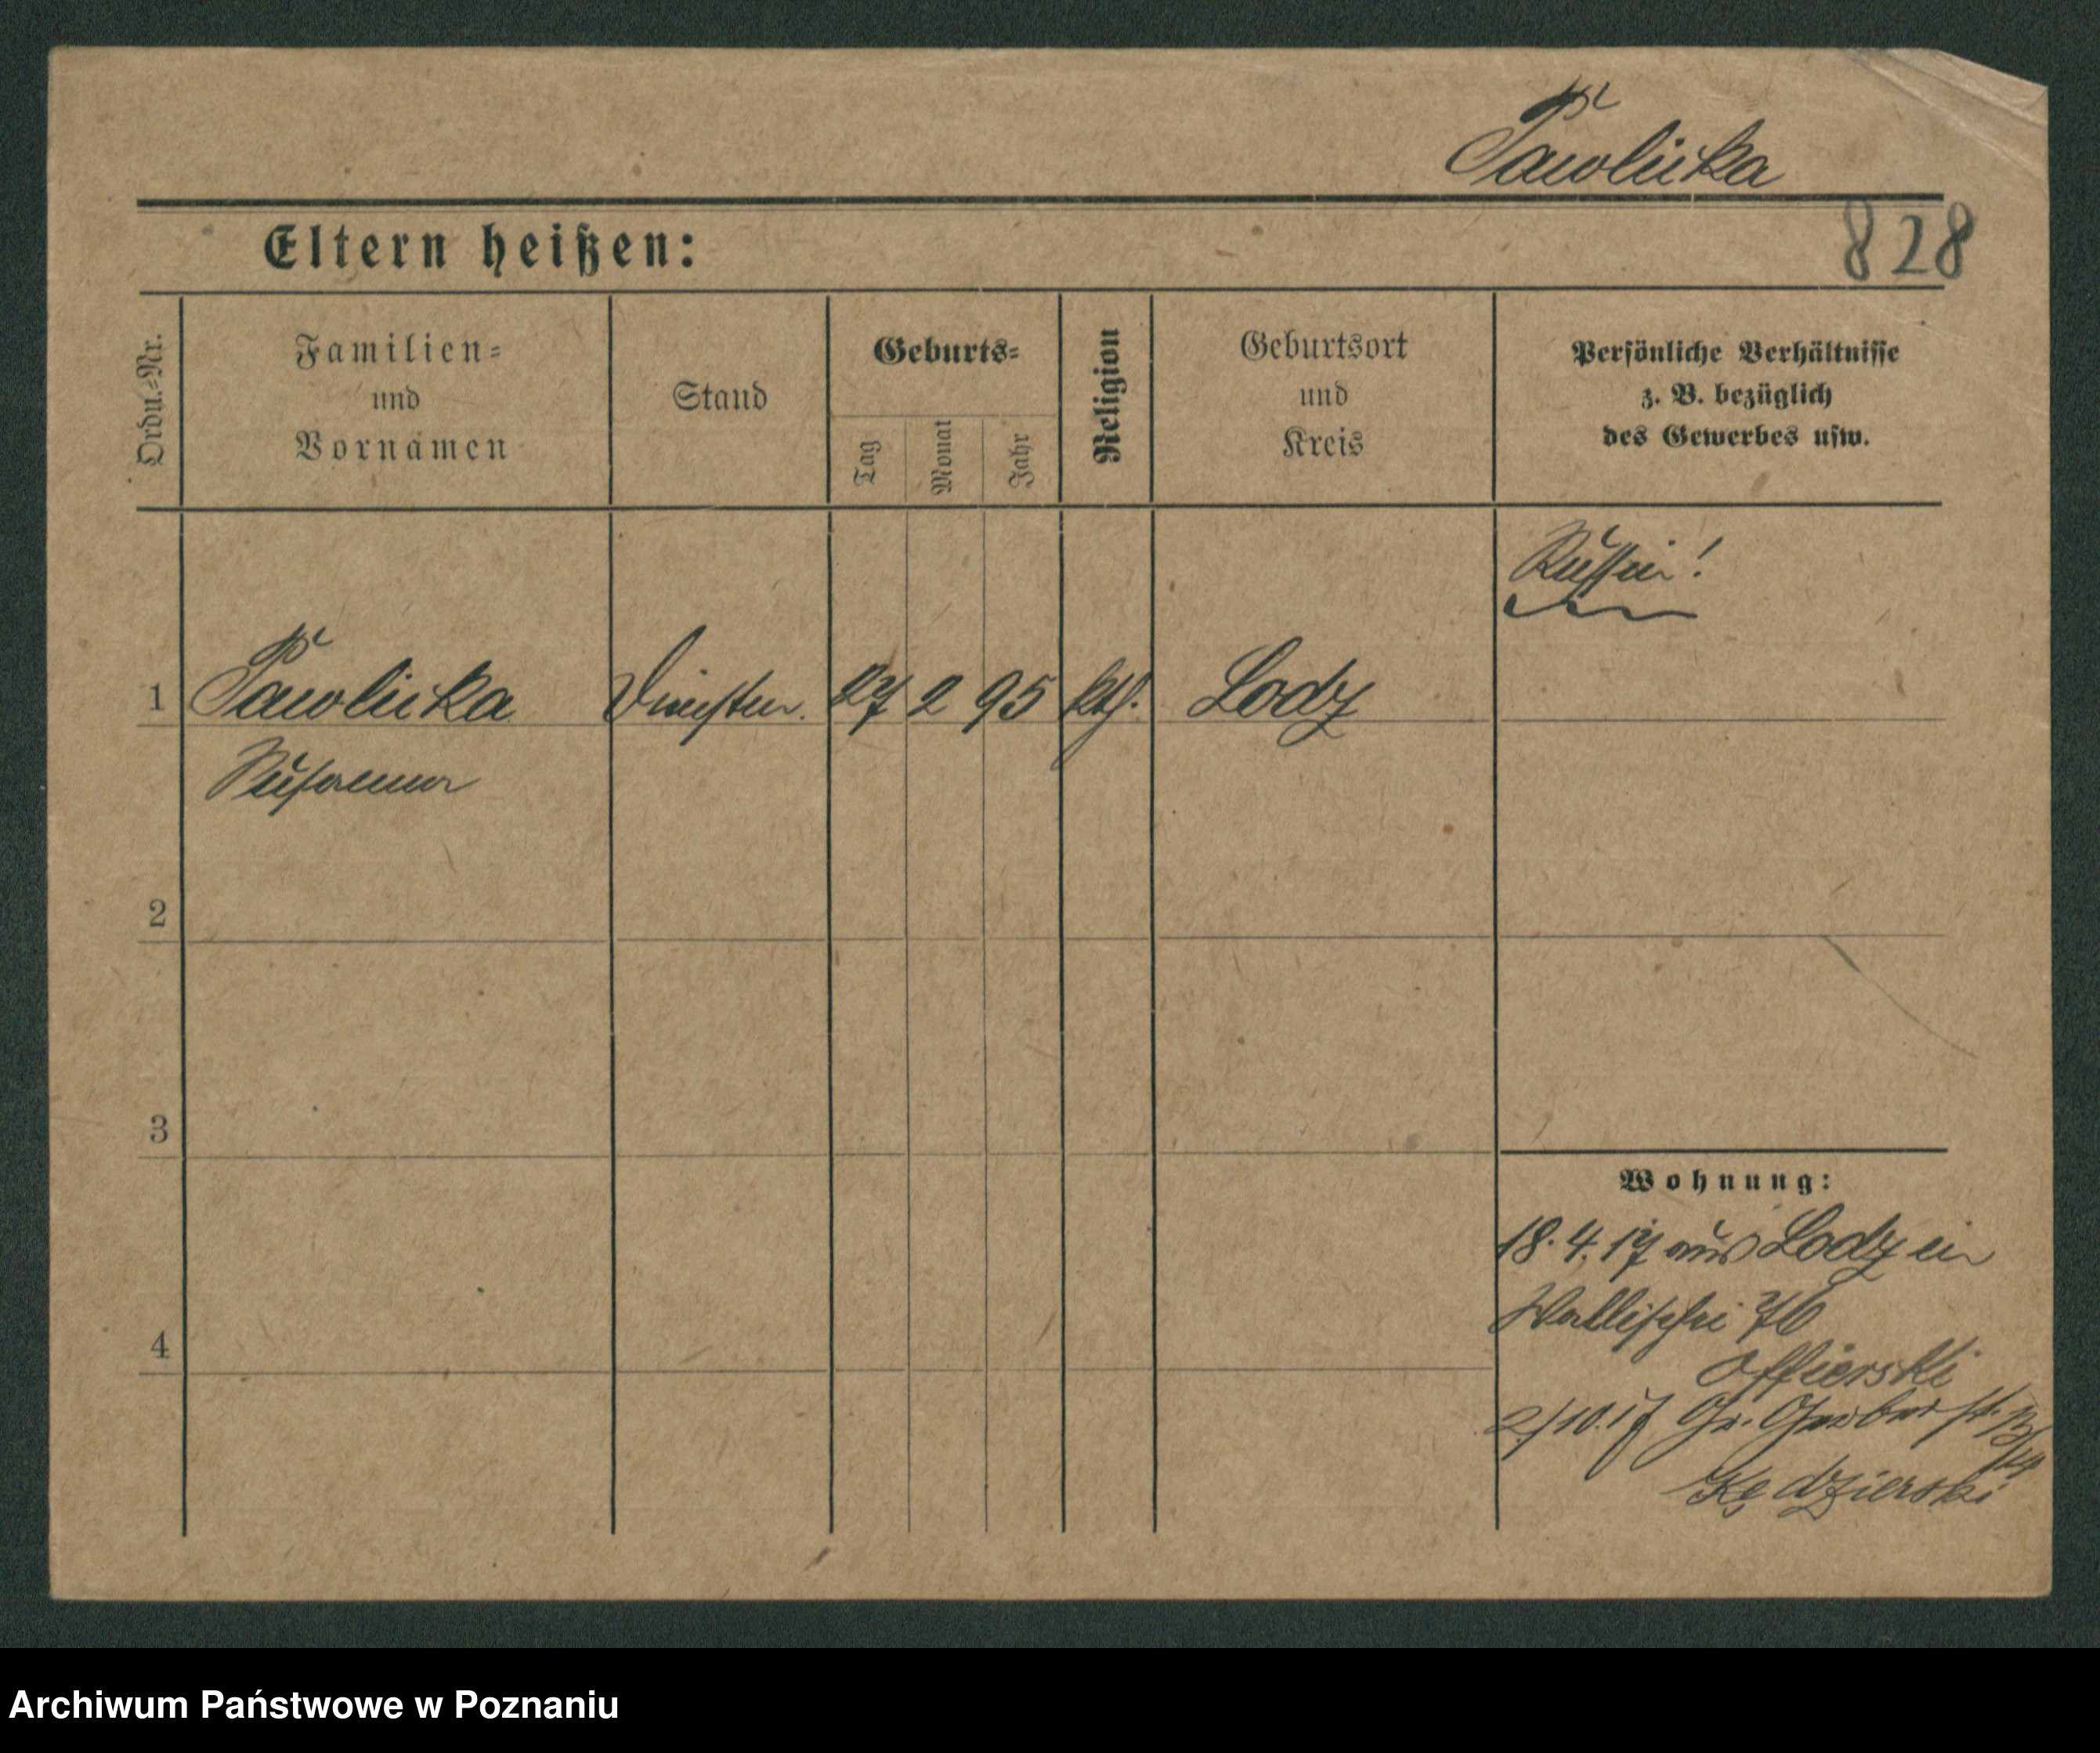 Pawlicka
828
Eltern heißen:
Ordn.-Nr.
Familien-
und
Vornamen
Stand
Geburts-
Tag
Monat
Jahr
Religion
Geburtsort
und
Kreis
Persönliche Verhältnisse
z. B. bezüglich
des Gewerbes usw.
Russin!
1 Pawlicka 27 2 95 kth. Lodz
Susanna
2
3
4
Wohnung:
18.4.17 aus Lodz in
Wallischei 76
Offierski
2/10.17 Gr. Gerberst. 13/14
Kędzierski
Archiwum Państwowe w Poznaniu